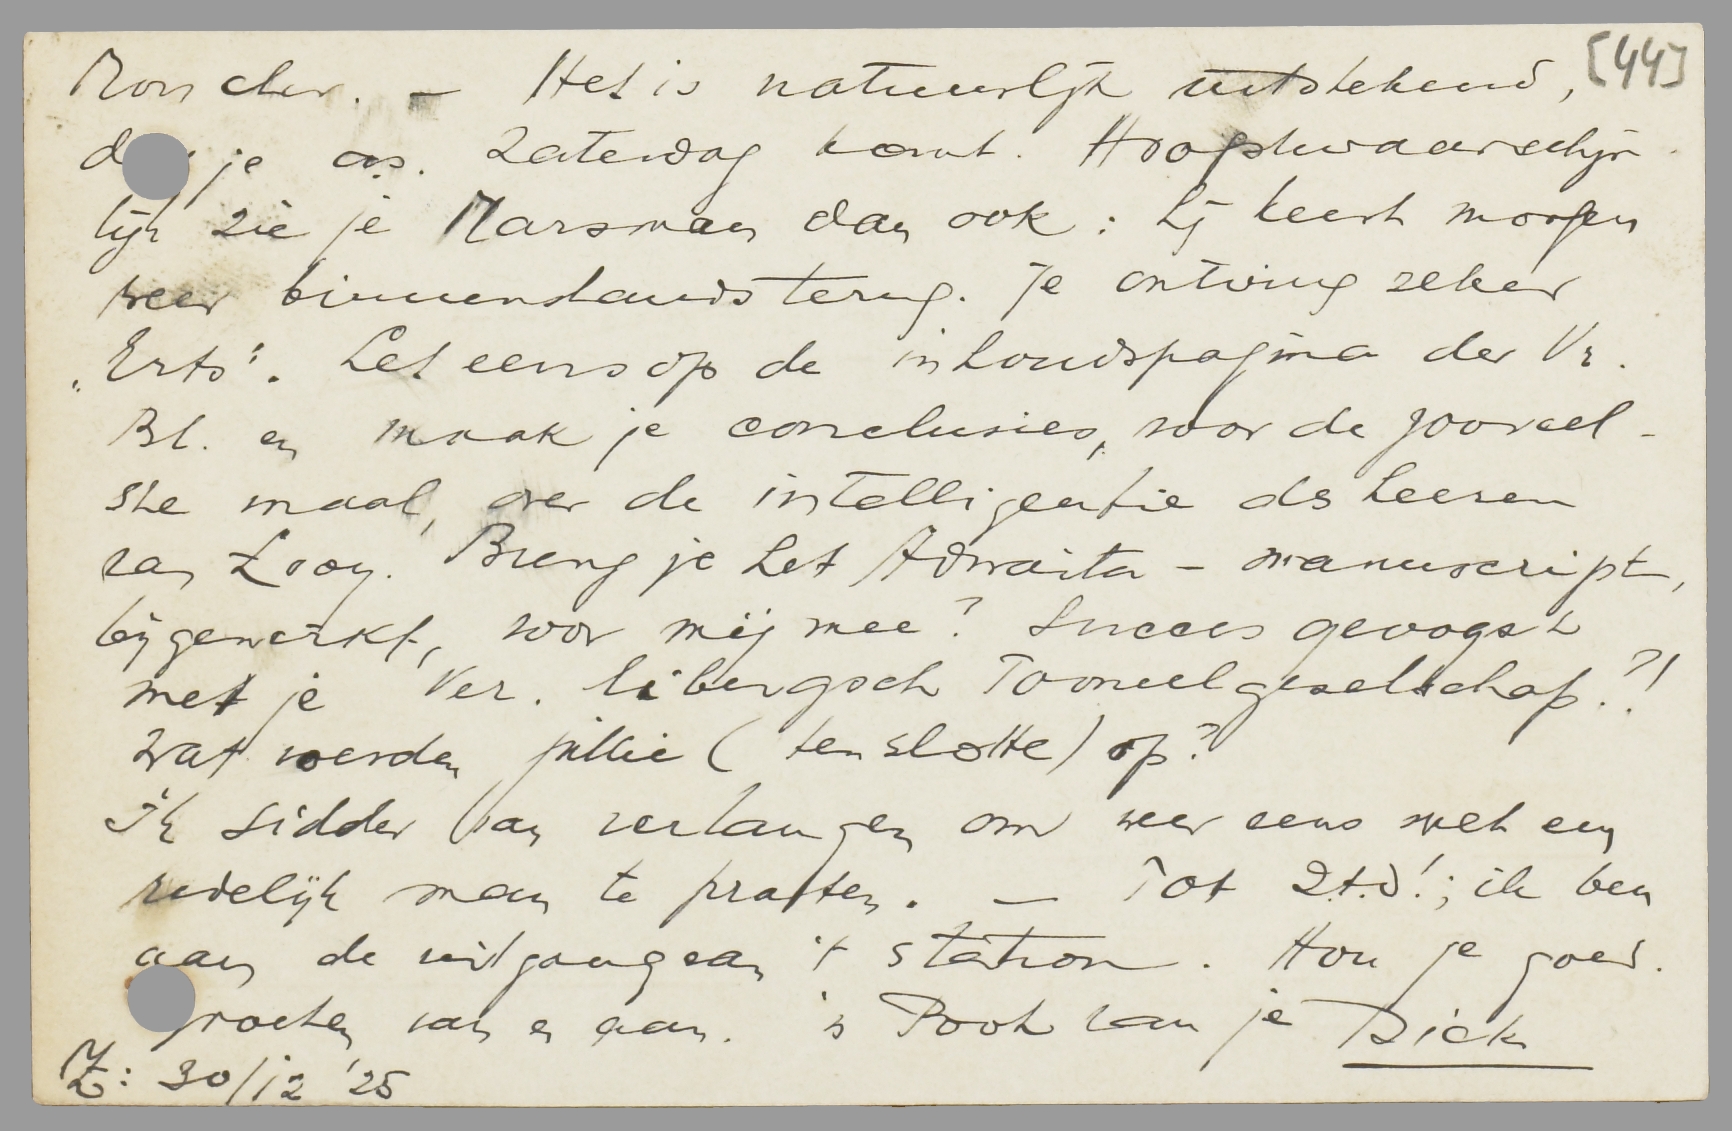 [44]
Mon cher. — Het is natuurlijk uitstekend,
je a.s. Zaterdag komt. Hoogstwaarschijn
lijk zie je Marsman dan ook: hij keert morgen
weer binnenslands terug. Je ontving zeker
„Erts”. Let eens op de inhoudspagina der Vr.
Bl. en maak je conclusies, voor de zooveel-
ste maal, over de intelligentie ds heeren
van Looy. Breng je het Adwaita - manuscript,
bijgewerkt, voor mij mee? Succes gewogst
met je Ver. Libergsch Tooneelgezelschap?!
wat voerden jullie (tenslotte) op?
Ik sidder van verlangen om weer eens met een
redelijk man te praten. — Tot Z.t.d!; ik ben
aan de uitgang van 't station. Hou je goed.
groeten van en aan. 'n Poot van je Dick
Z: 30/12 '25